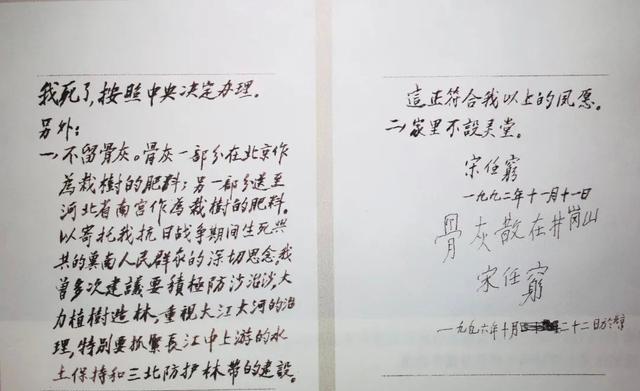 我死了，按照中央决定办理。
另外：
一、不留骨灰。骨灰一部分在北京作
為栽樹的肥料；另一部分送至
河北省南宫作為栽樹的肥料。
以寄托我抗日战争期间生死與
共的冀南人民群衆的深切思念。我
曾多次建議要積極防沙治沙，大
力植樹造林，重視大江大河的治
理，特别要抓緊長江中上游的水
土保持和三北防护林帶的建設。
這正符合我以上的夙愿。
二、家里不設灵堂。
宋任窮
一九九二年十一月十一日
骨灰散在井崗山
宋任窮
一九九六年十月二十二日於